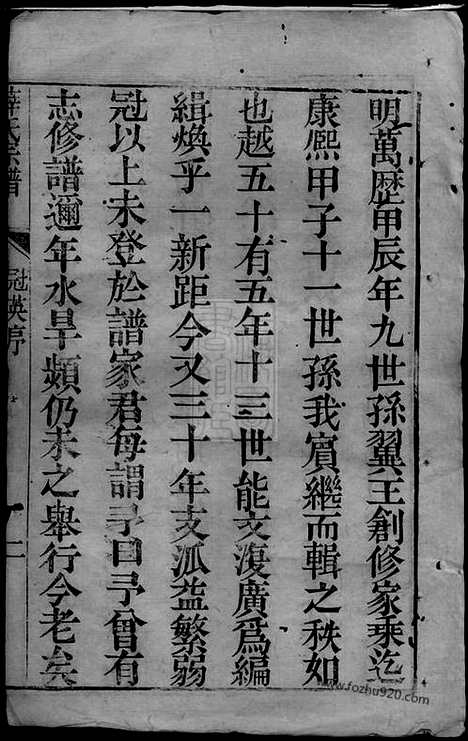 明萬歷甲辰年九世孫翼王創修家乘迄
康熙甲子十一世孫我賓繼而輯之秩如
也越五十有五年十三世能文復廣爲編
緝煥乎一新距今又三十年支派益繁弱
冠以上未登於譜家君每謂予曰予曾有
志修譜邇年水旱頻仍未之舉行今老矣
薛氏宗譜
冠英序
二
www.fozhu920.com